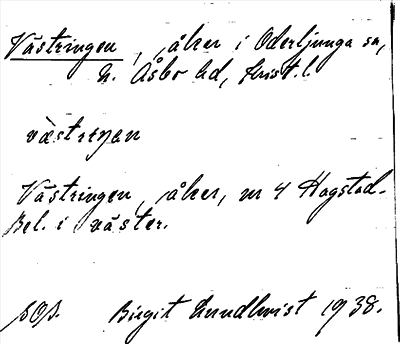 Västringen, åker i Oderljunga sn,
N. Åsbo hd, Krist. l.
västreŋan
Västringen, åker, nr 4 Hagstad.
Bel. i väster.
Birgit Lundkvist 1938.